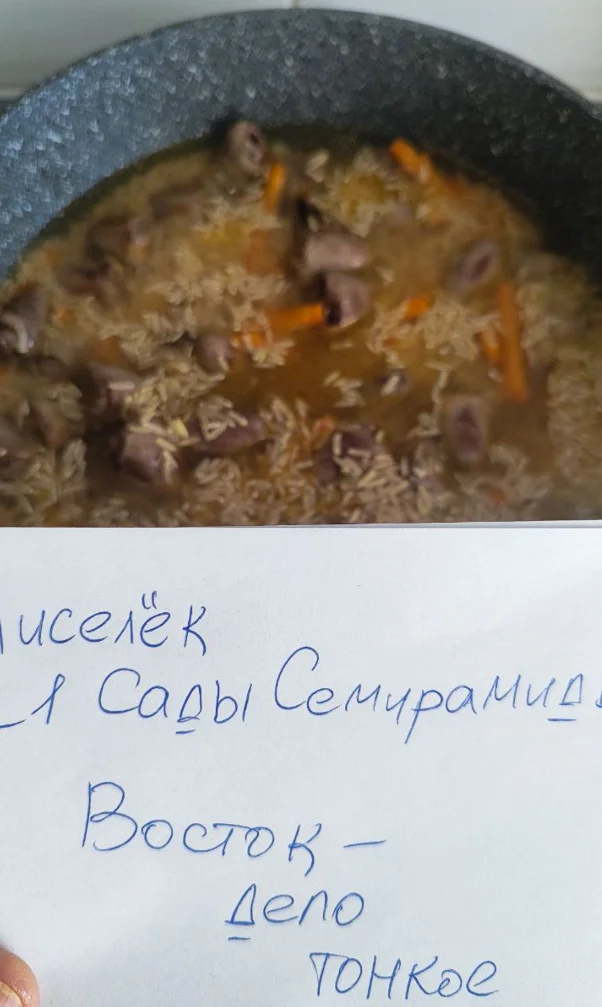 иселёк
_1 Сады Семирамиды
Восток –
дело
тонкое